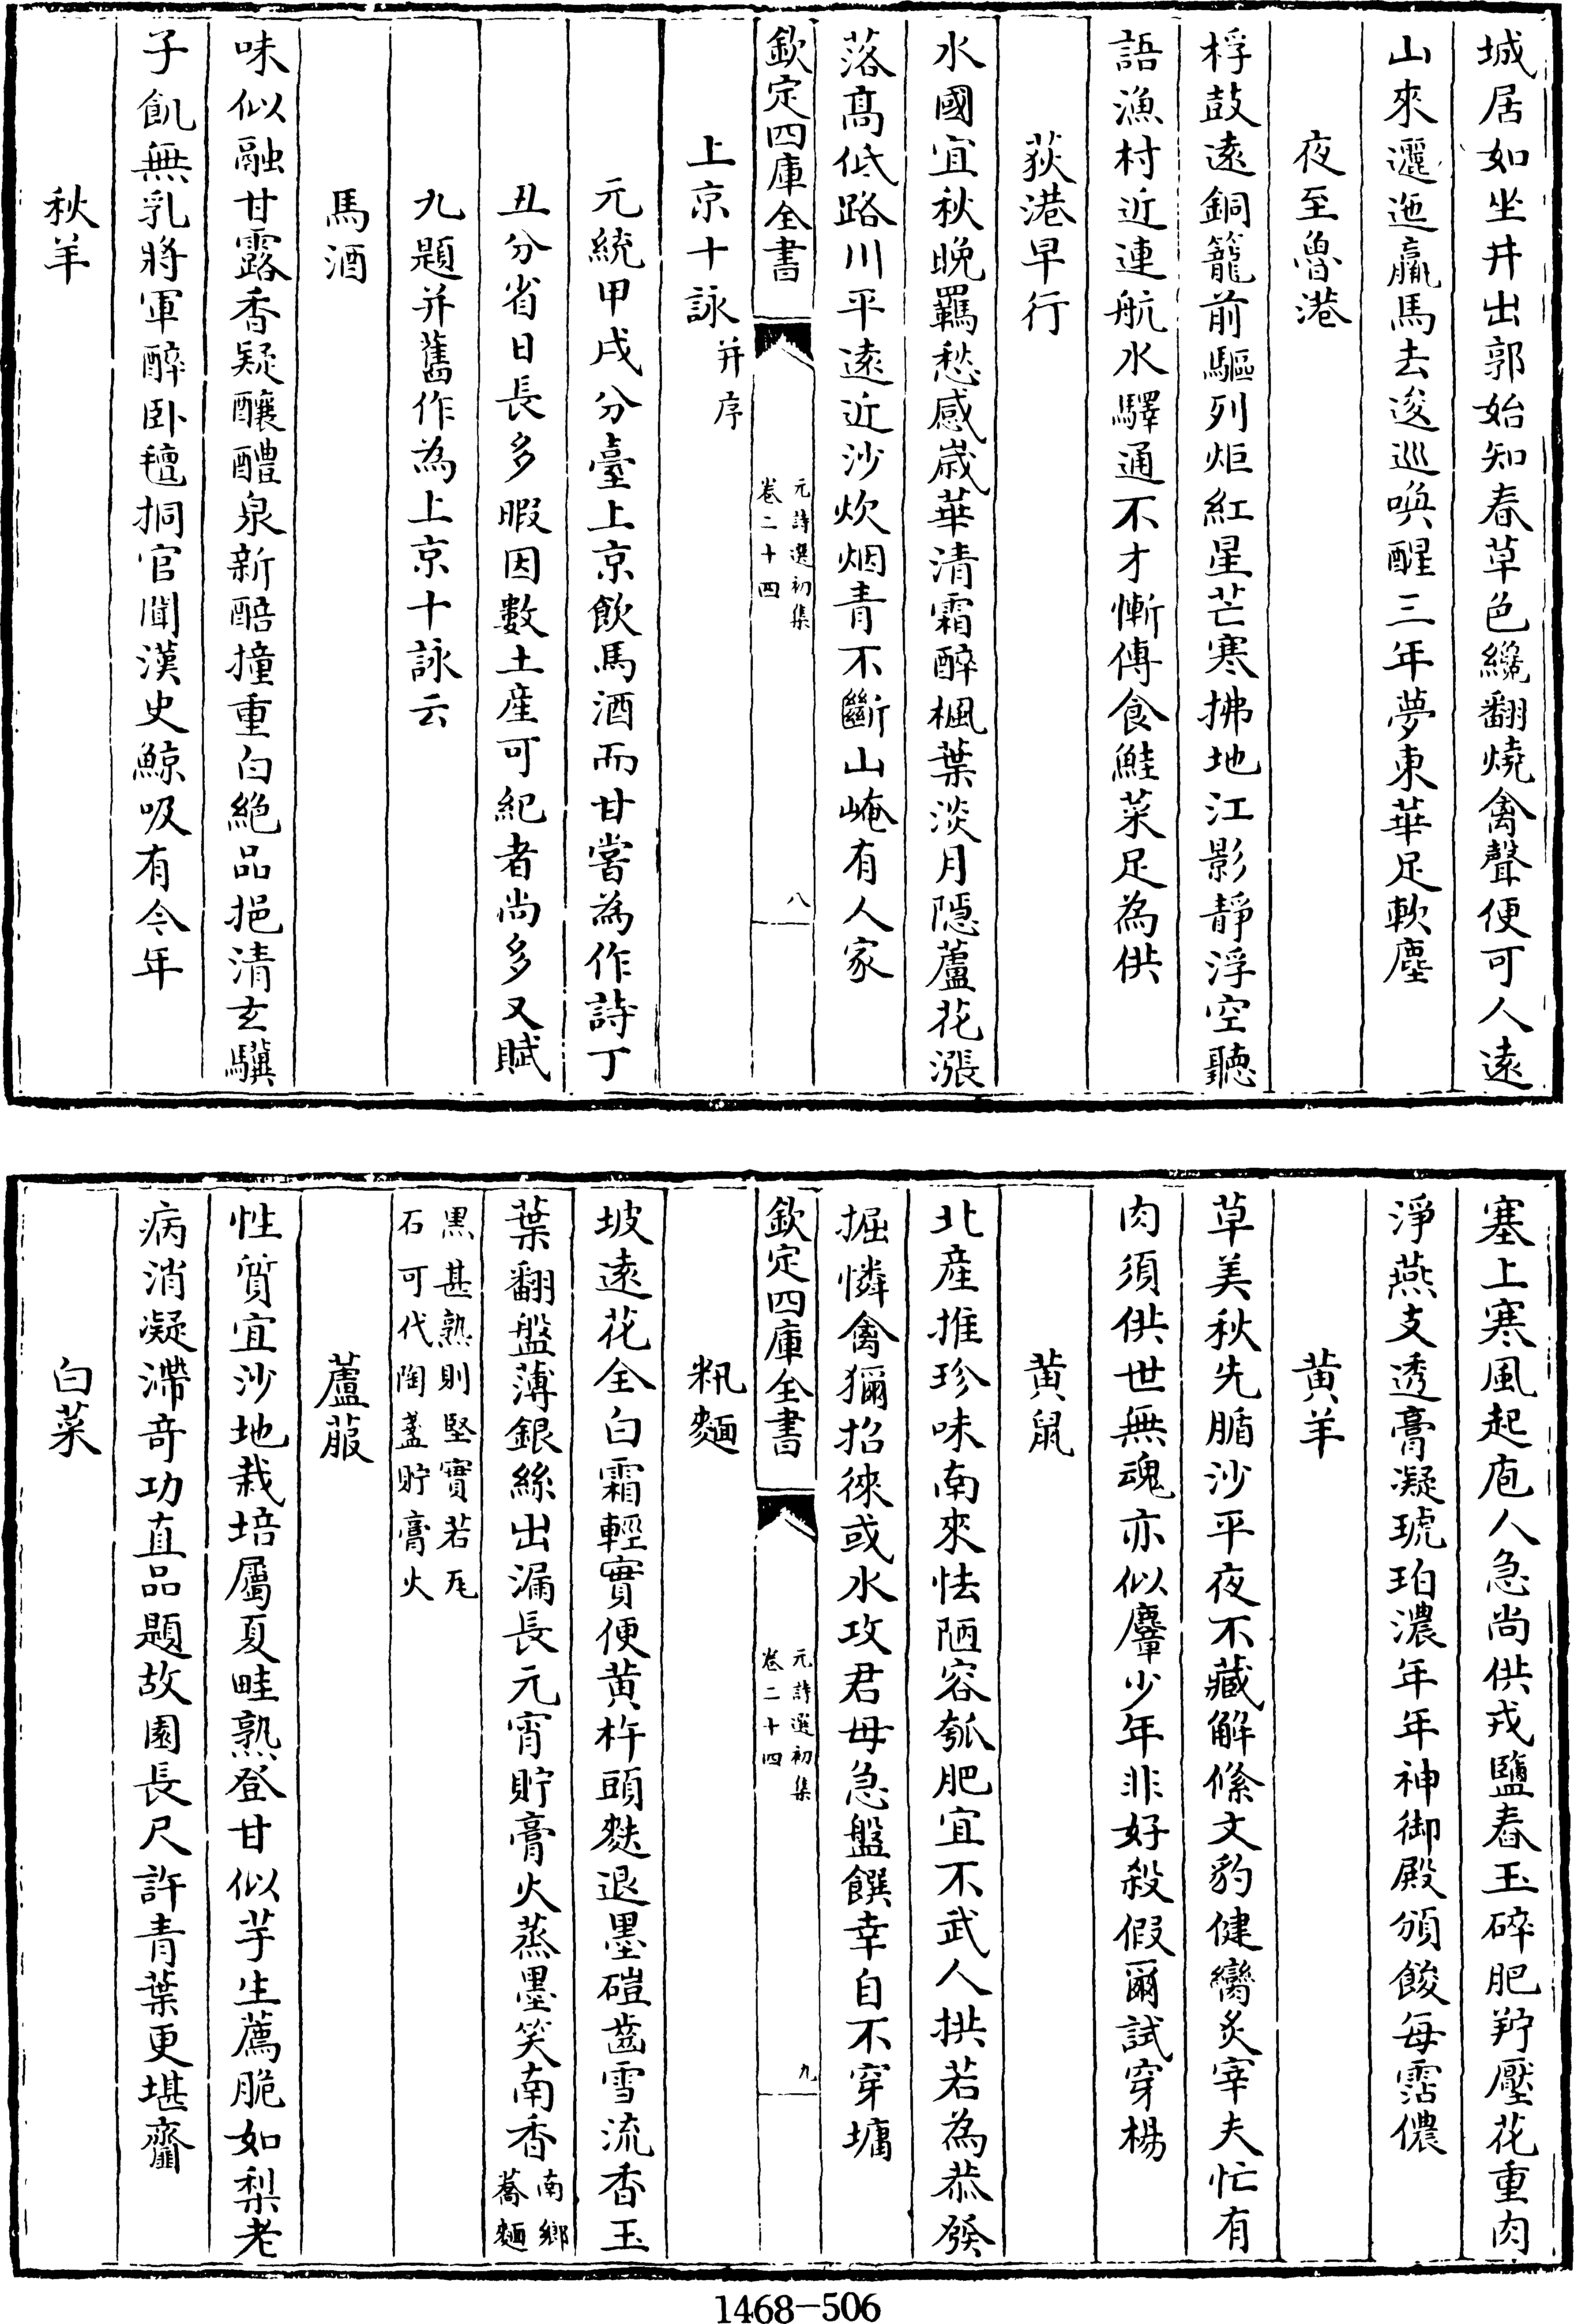 城居如坐井出郭始知春草色纔翻燒禽聲便可人遠
山來邐迤羸馬去逡巡喚醒三年夢東華足軟塵
夜至魯港
桴鼓遠銅籠前驅列炬紅星芒寒拂地江影靜浮空聽
語漁村近連航水驛通不才慚傳食鮭菜足為供
荻港早行
水國宜秋晚羈愁感歲華清霜醉楓葉淡月隱蘆花漲
落髙低路川平遠近沙炊烟青不斷山崦有人家
欽定四庫全書
元詩選初集
卷二十四
八
上京十詠并序
元統甲戌分臺上京飲馬酒而甘嘗為作詩丁
丑分省日長多暇因數土産可紀者尚多又賦
九題并舊作為上京十詠云
馬酒
味似融甘露香疑釀醴泉新醅撞重白絶品挹清玄驥
子飢無乳將軍醉卧氊挏官聞漢史鯨吸有今年
秋羊
塞上寒風起庖人急尚供戎鹽舂玉碎肥羜壓花重肉
淨燕支透膏凝琥珀濃年年神御殿頒餕每霑儂
黄羊
草美秋先腯沙平夜不藏解絛文豹健臠炙宰夫忙有
肉須供世無魂亦似麞少年非好殺假爾試穿楊
黄鼠
北産推珍味南來怯陋容瓠肥宜不武人拱若為恭發
掘憐禽獮招徠或水攻君毋急盤饌幸自不穿墉
欽定四庫全書
元詩選初集
卷二十四
九
籸麵
坡遠花全白霜輕實便黄杵頭麩退墨磑齒雪流香玉
葉翻盤薄銀絲出漏長元宵貯膏火蒸墨笑南香南鄉
蕎麵
黒甚熟則堅實若瓦
石可代陶盞貯膏火
蘆菔
性質宜沙地栽培屬夏畦熟登甘似芋生薦脆如梨老
病消凝滯竒功直品題故園長尺許青葉更堪齏
白菜
1468-506